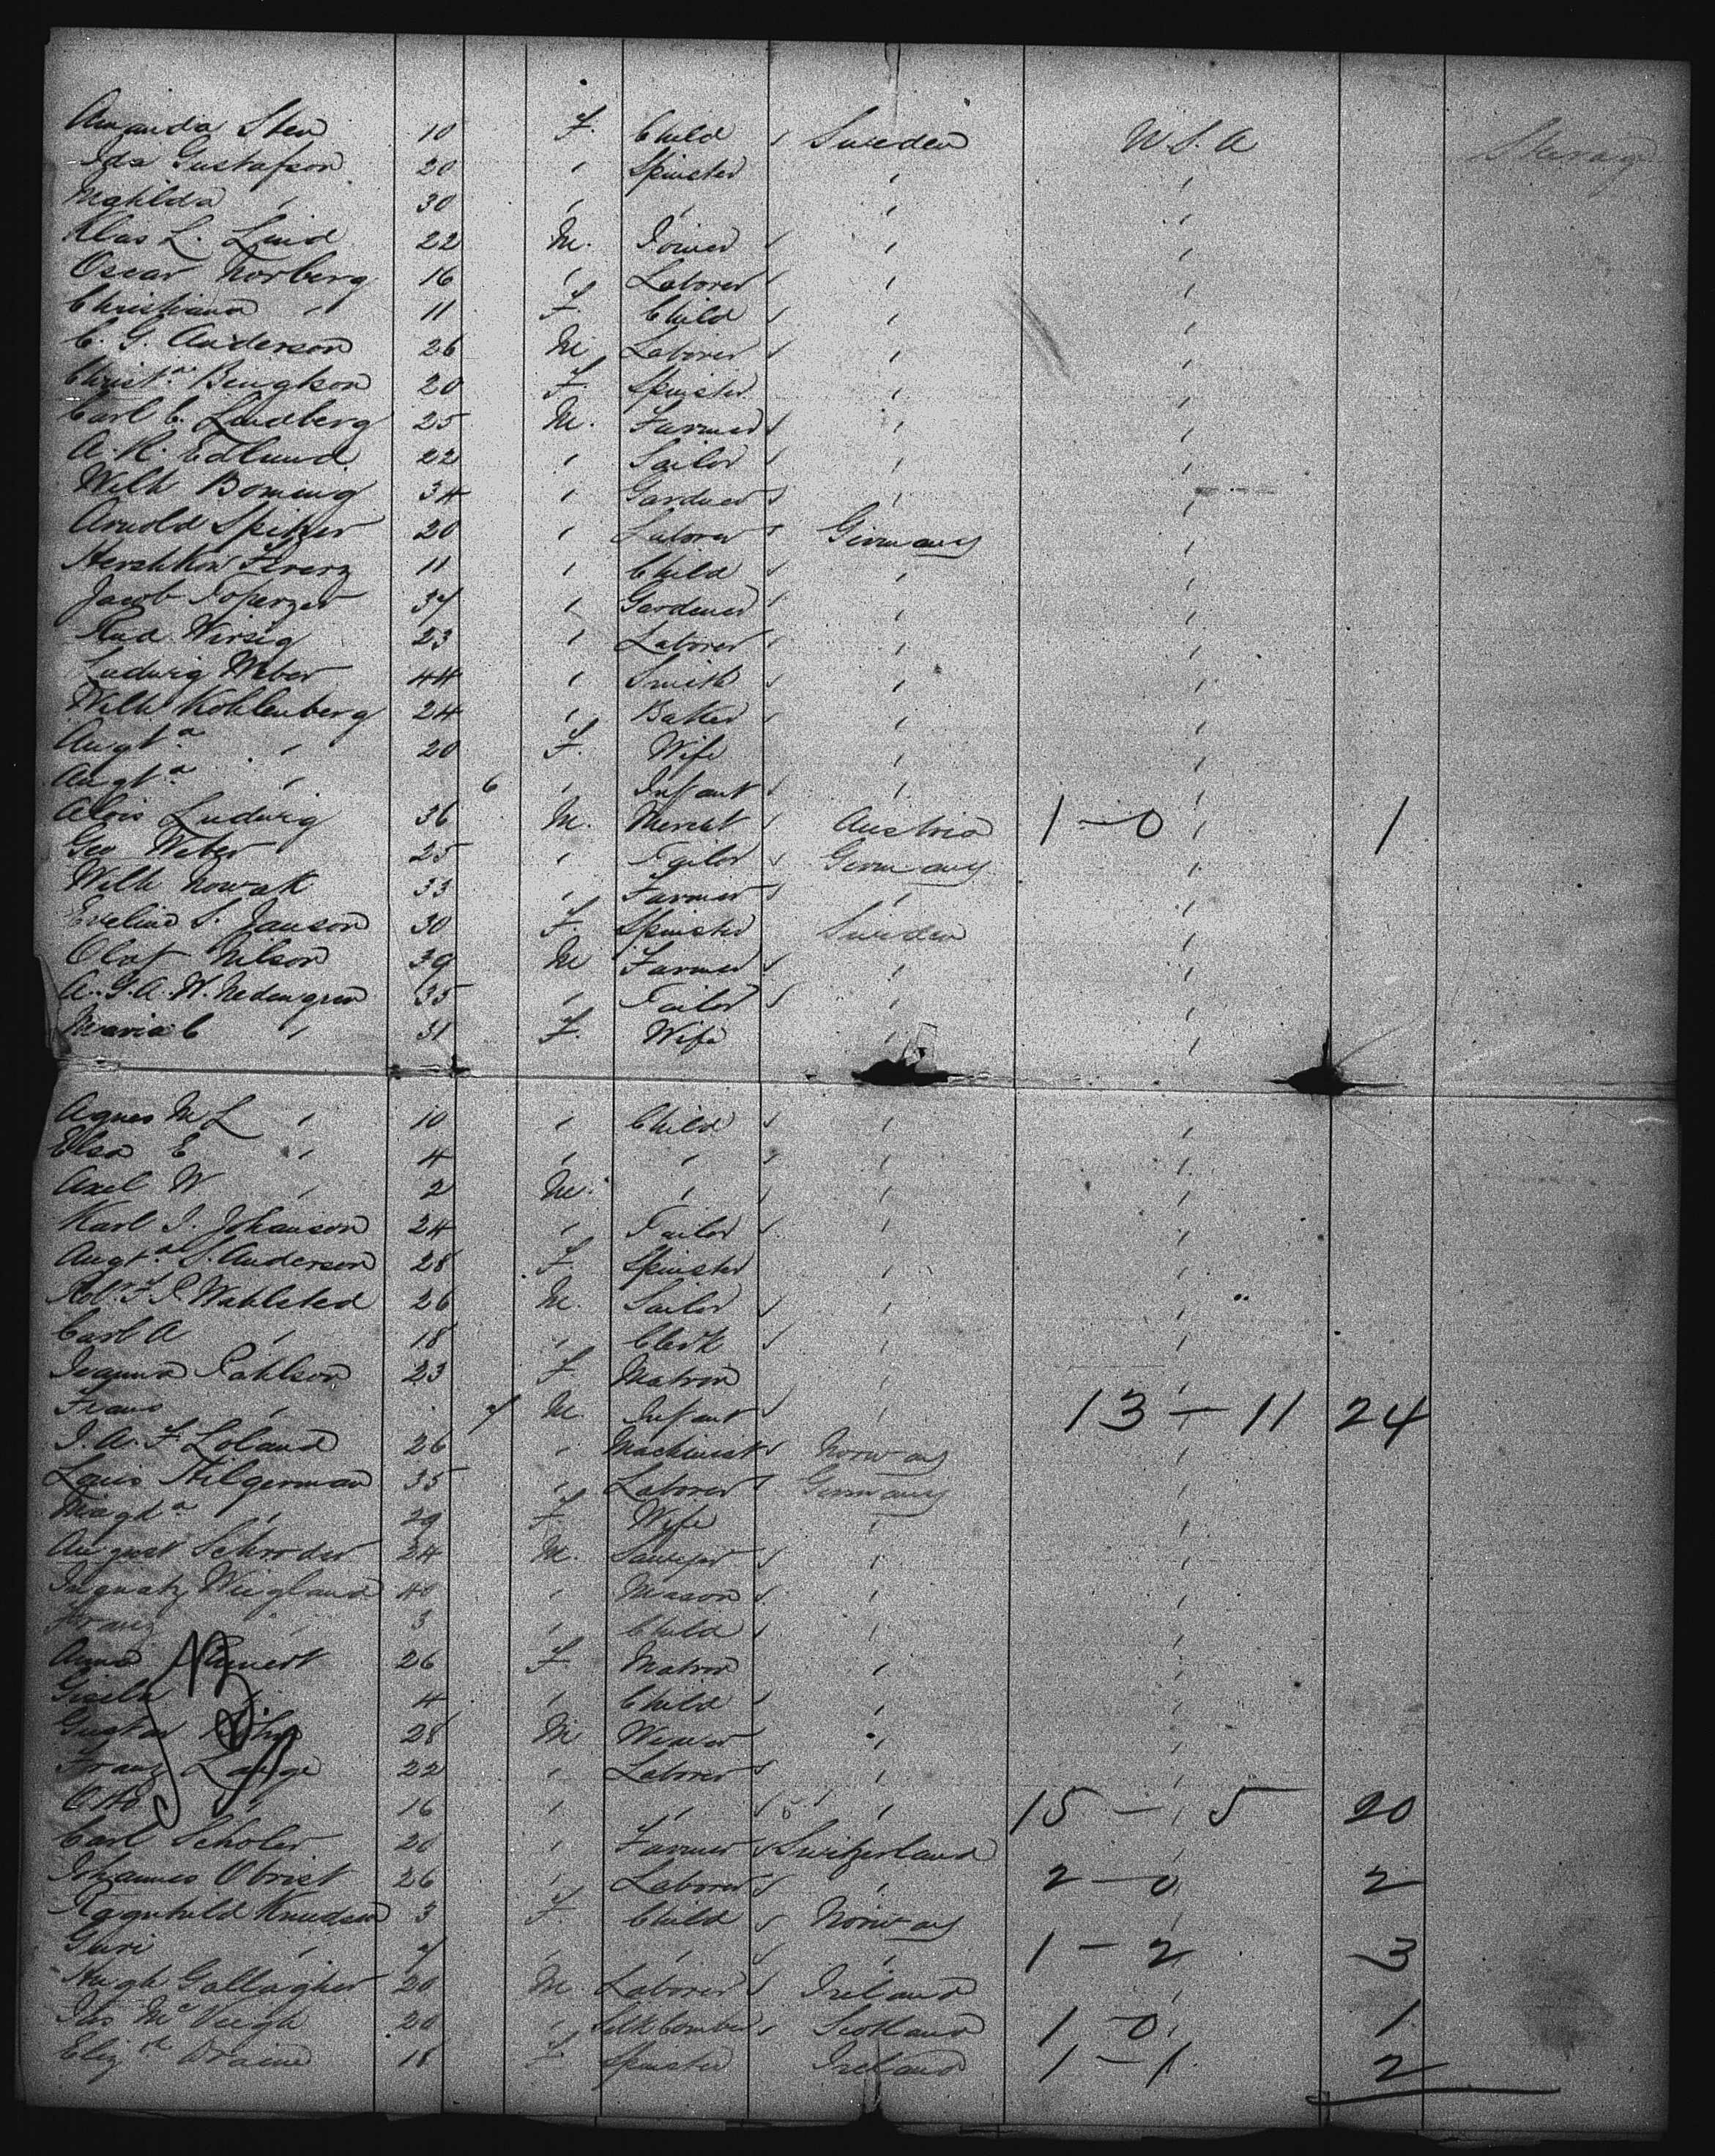 Amanda Sten 10 F. Child Sweden U.S.A Steerage
Ida Gustafson 20 " Spinster " "
Mathilda " 30 " " " "
Klas L. Lind 22 M. Joiner " "
Oscar Norberg 16 " Laborer " "
Christiana " 11 F. Child " "
C. G. Anderson 26 M Laborer " "
Christa. Bengtson 20 F. Spinster " "
Carl C. Lindberg 25 M. Farmer " "
A. R. Edlund 22 " Sailor " "
Wilh Boming 34 " Gardner " "
Arnold Spitzer 20 " Laborer Germany "
Hershkow 11 " Child " "
Jacob 37 " Gardener " "
Rud Wirsig 23 " Laborer " "
Ludwig Weber 44 " Smith " "
Wilh Kohlenberg 24 " Baker " "
Augta. " 20 F. Wife " "
Augta. " 6 " Infant " "
Alois Ludwig 36 M. Mercht Austria 1 - 0 " 1
Geo Weber 25 " Tailor Germany "
Wilh Nowak 33 " Farmer " "
Eveline S. Janson 30 F. Spinster Sweden "
Olof Nilson 39 M Farmer " "
A. G. A. W. Nedengren 35 " Tailor " "
Maria C " 31 F. Wife " "
Agnes M L " 10 " Child " "
Elsa E " 4 " " " "
Axel W " 2 M. " " "
Karl I. Johanson 24 " Tailor " "
Augta. S. Anderson 28 F. Spinster " "
Robt. F. P. Wahlsted 26 M. Sailor " "
Carl A " 18 " Clerk " "
Ivanna Pahlson 23 F. Matron " "
Frans " 7 M Infant " " 13 - 11 24
I. A. F Loland 26 " Machinist Norway "
Louis Hilgerman 35 " Laborer Germany "
Magda. " 29 F. Wife " "
August Schroder 24 M. " "
Ingnatz Wiegland 40 " Mason " "
Franz " 3 " Child " "
Anna 26 F. Matron " "
Gisela " 4 " Child " "
Gustav 28 M Weaver " "
Franz Lange 22 " Laborer " "
Otto " 16 " " " 15 - 5 20
Carl Scholer 20 " Farmer Switzerland "
Johannes Obrist 26 " Laborer " 2 - 0 2
Ragnhild Knudsen 3 F. Child Norway "
Guri " 7 " " " 1 - 2 3
Hugh Gallagher 20 M Laborer Ireland "
Jas McVeigh 20 " Silk Comber Scotland 1 - 0 1
Elizth Draine 18 F. Spinster Ireland 1 - 1 2